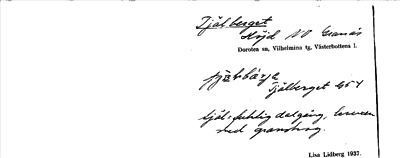 Tjälberget
Höjd NO Granås
Dorotea sn, Vilhelmina tg, Västerbottens l.
Tjälberget G54
tjäl: dalgång,
med granskog.
Lisa Lidberg 1937.